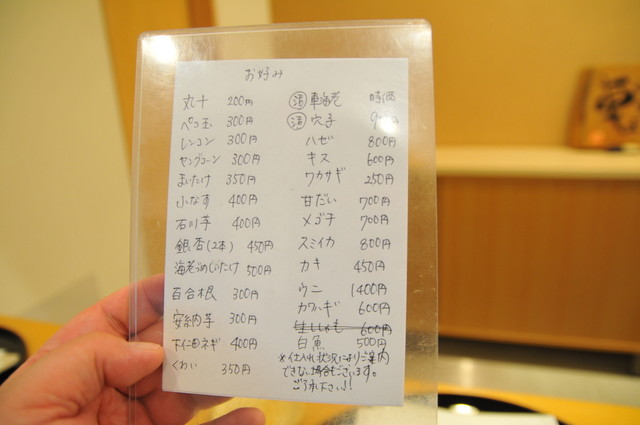 お好み
丸十 200円
ペコ玉 300円
レンコン 300円
ヤングコーン 300円
まいたけ 350円
小なす 400円
石川芋 400円
銀杏(2本) 450円
海老づめしいたけ 500円
百合根 300円
安納芋 300円
下仁田ネギ 400円
くわい 350円
活 車海老 時価
活 穴子
ハゼ 800円
キス 600円
ワカサギ 250円
甘だい 700円
メゴチ 700円
スミイカ 800円
カキ 450円
ウニ 1400円
カワハギ 600円
生ししゃも 600円
白魚 500円
※仕入れ状況によりご案内
できない場合もございます。
ご了承下さい!!